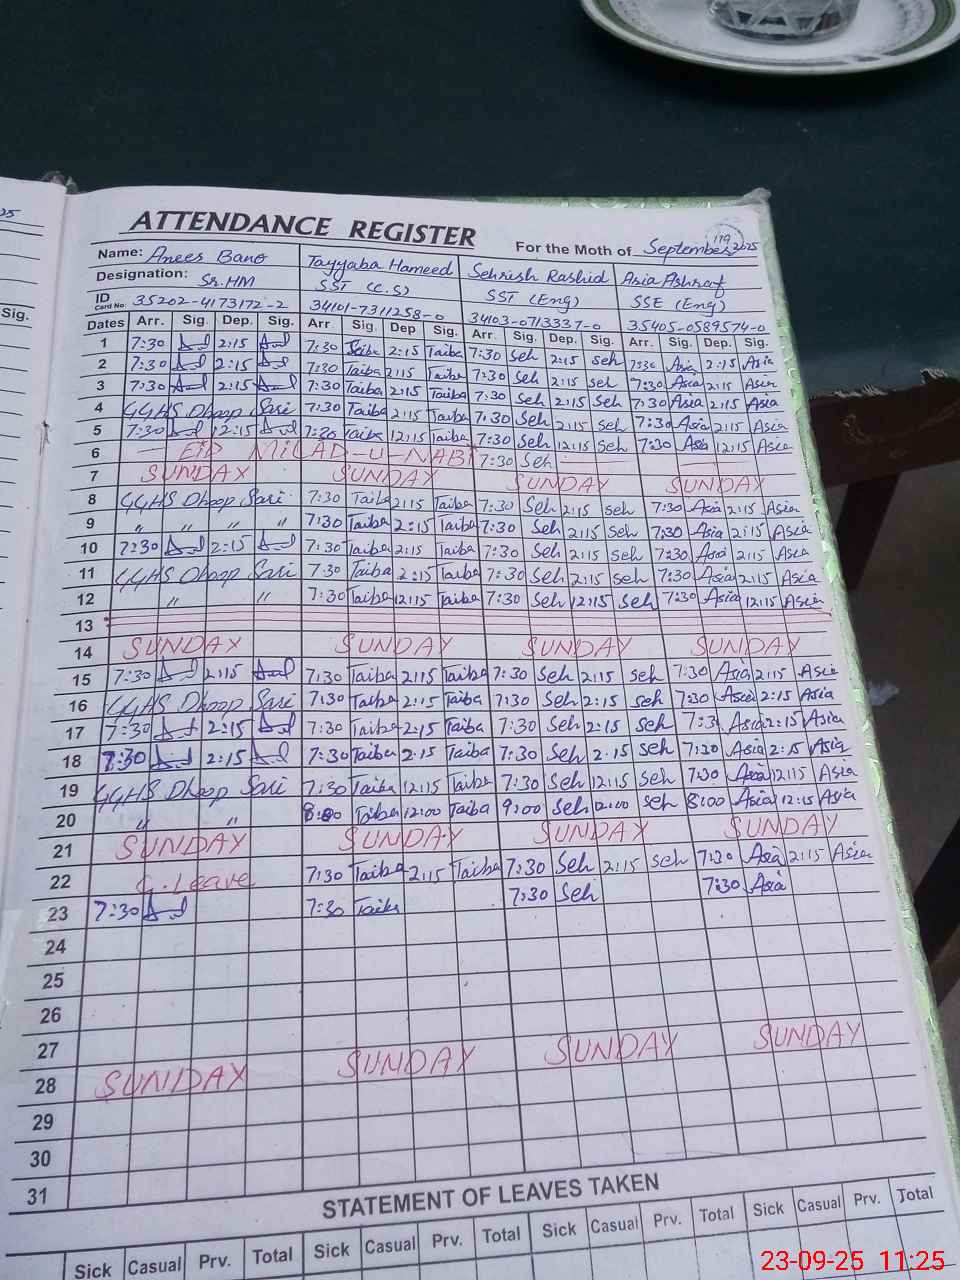 25
Sig.
ATTENDANCE REGISTER
119
For the Moth of September 2025
Name: Anees Bano Tayyaba Hameed Sehrish Rashid Asia Ashraf
Designation: Sr.HM SST (C.S) SST (Eng) SSE (Eng)
ID Card No. 35202-4173172-2 34101-7311258-0 34103-0713337-0 35405-0589574-0
Dates Arr. Sig. Dep. Sig. Arr. Sig. Dep Sig. Arr. Sig. Dep. Sig. Arr. Sig. Dep. Sig.
1 7:30 2:15 7:30 Taiba 2:15 Taiba 7:30 Seh 2:15 seh 7:30 Asia 2:15 Asia
2 7:30 2:15 7:30 Taiba 2:15 Taiba 7:30 Seh 2:15 seh 7:30 Asia 2:15 Asia
3 7:30 2:15 7:30 Taiba 2:15 Taiba 7:30 Seh 2:15 seh 7:30 Asia 2:15 Asia
4 GGHS Dhoop Sari 7:30 Taiba 2:15 Taiba 7:30 Seh 2:15 seh 7:30 Asia 2:15 Asia
5 7:30 12:15 7:30 Taiba 12:15 Taiba 7:30 Seh 12:15 seh 7:30 Asia 12:15 Asia
6 — EID MILAD-U-NABI 7:30 Seh
7 SUNDAY SUNDAY SUNDAY SUNDAY
8 GGHS Dhoop Sari 7:30 Taiba 2:15 Taiba 7:30 Seh 2:15 seh 7:30 Asia 2:15 Asia
9 " " " " 7:30 Taiba 2:15 Taiba 7:30 Seh 2:15 seh 7:30 Asia 2:15 Asia
10 7:30 2:15 7:30 Taiba 2:15 Taiba 7:30 Seh 2:15 seh 7:30 Asia 2:15 Asia
11 GGHS Dhoop Sari 7:30 Taiba 2:15 Taiba 7:30 Seh 2:15 seh 7:30 Asia 2:15 Asia
12 " " 7:30 Taiba 12:15 Taiba 7:30 Seh 12:15 seh 7:30 Asia 12:15 Asia
13
14 SUNDAY SUNDAY SUNDAY SUNDAY
15 7:30 2:15 7:30 Taiba 2:15 Taiba 7:30 Seh 2:15 seh 7:30 Asia 2:15 Asia
16 GGHS Dhoop Sari 7:30 Taiba 2:15 Taiba 7:30 Seh 2:15 seh 7:30 Asia 2:15 Asia
17 7:30 2:15 7:30 Taiba 2:15 Taiba 7:30 Seh 2:15 seh 7:3 Asia 2:15 Asia
18 7:30 2:15 7:30 Taiba 2:15 Taiba 7:30 Seh 2:15 seh 7:20 Asia 2:15 Asia
19 GGHS Dhoop Sari 7:30 Taiba 12:15 Taiba 7:30 Seh 12:15 seh 7:30 Asia 12:15 Asia
20 " " 8:00 Taiba 12:00 Taiba 9:00 Seh 12:00 seh 8:00 Asia 12:15 Asia
21 SUNDAY SUNDAY SUNDAY SUNDAY
22 C. Leave 7:30 Taiba 2:15 Taiba 7:30 Seh 2:15 seh 7:30 Asia 2:15 Asia
23 7:30 7:30 Taiba 7:30 Seh 7:30 Asia
24
25
26
27
28 SUNDAY SUNDAY SUNDAY SUNDAY
29
30
31
STATEMENT OF LEAVES TAKEN
Sick Casual Prv. Total Sick Casual Prv. Total Sick Casual Prv. Total Sick Casual Prv. Total
23-09-25 11:25